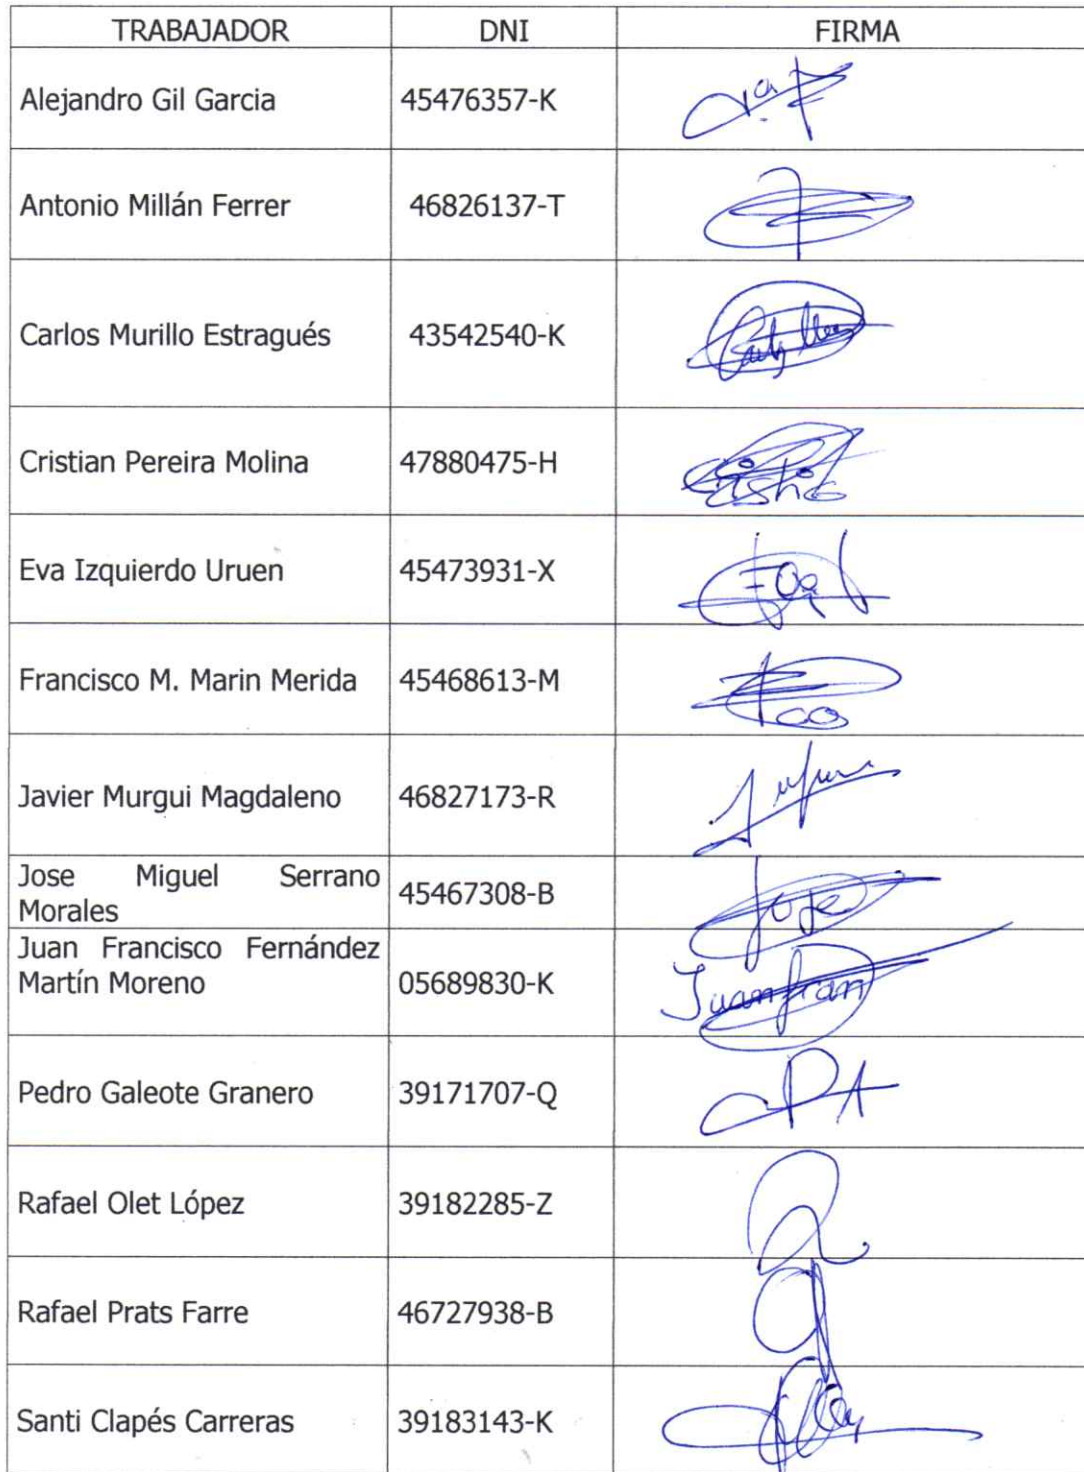 TRABAJADOR DNI FIRMA
Alejandro Gil Garcia 45476357-K
Antonio Millán Ferrer 46826137-T
Carlos Murillo Estragués 43542540-K
Cristian Pereira Molina 47880475-H
Eva Izquierdo Uruen 45473931-X
Francisco M. Marin Merida 45468613-M
Javier Murgui Magdaleno 46827173-R
Jose Miguel Serrano
Morales 45467308-B Jose
Juan Francisco Fernández
Martín Moreno 05689830-K Juanfran
Pedro Galeote Granero 39171707-Q
Rafael Olet López 39182285-Z
Rafael Prats Farre 46727938-B
Santi Clapés Carreras 39183143-K